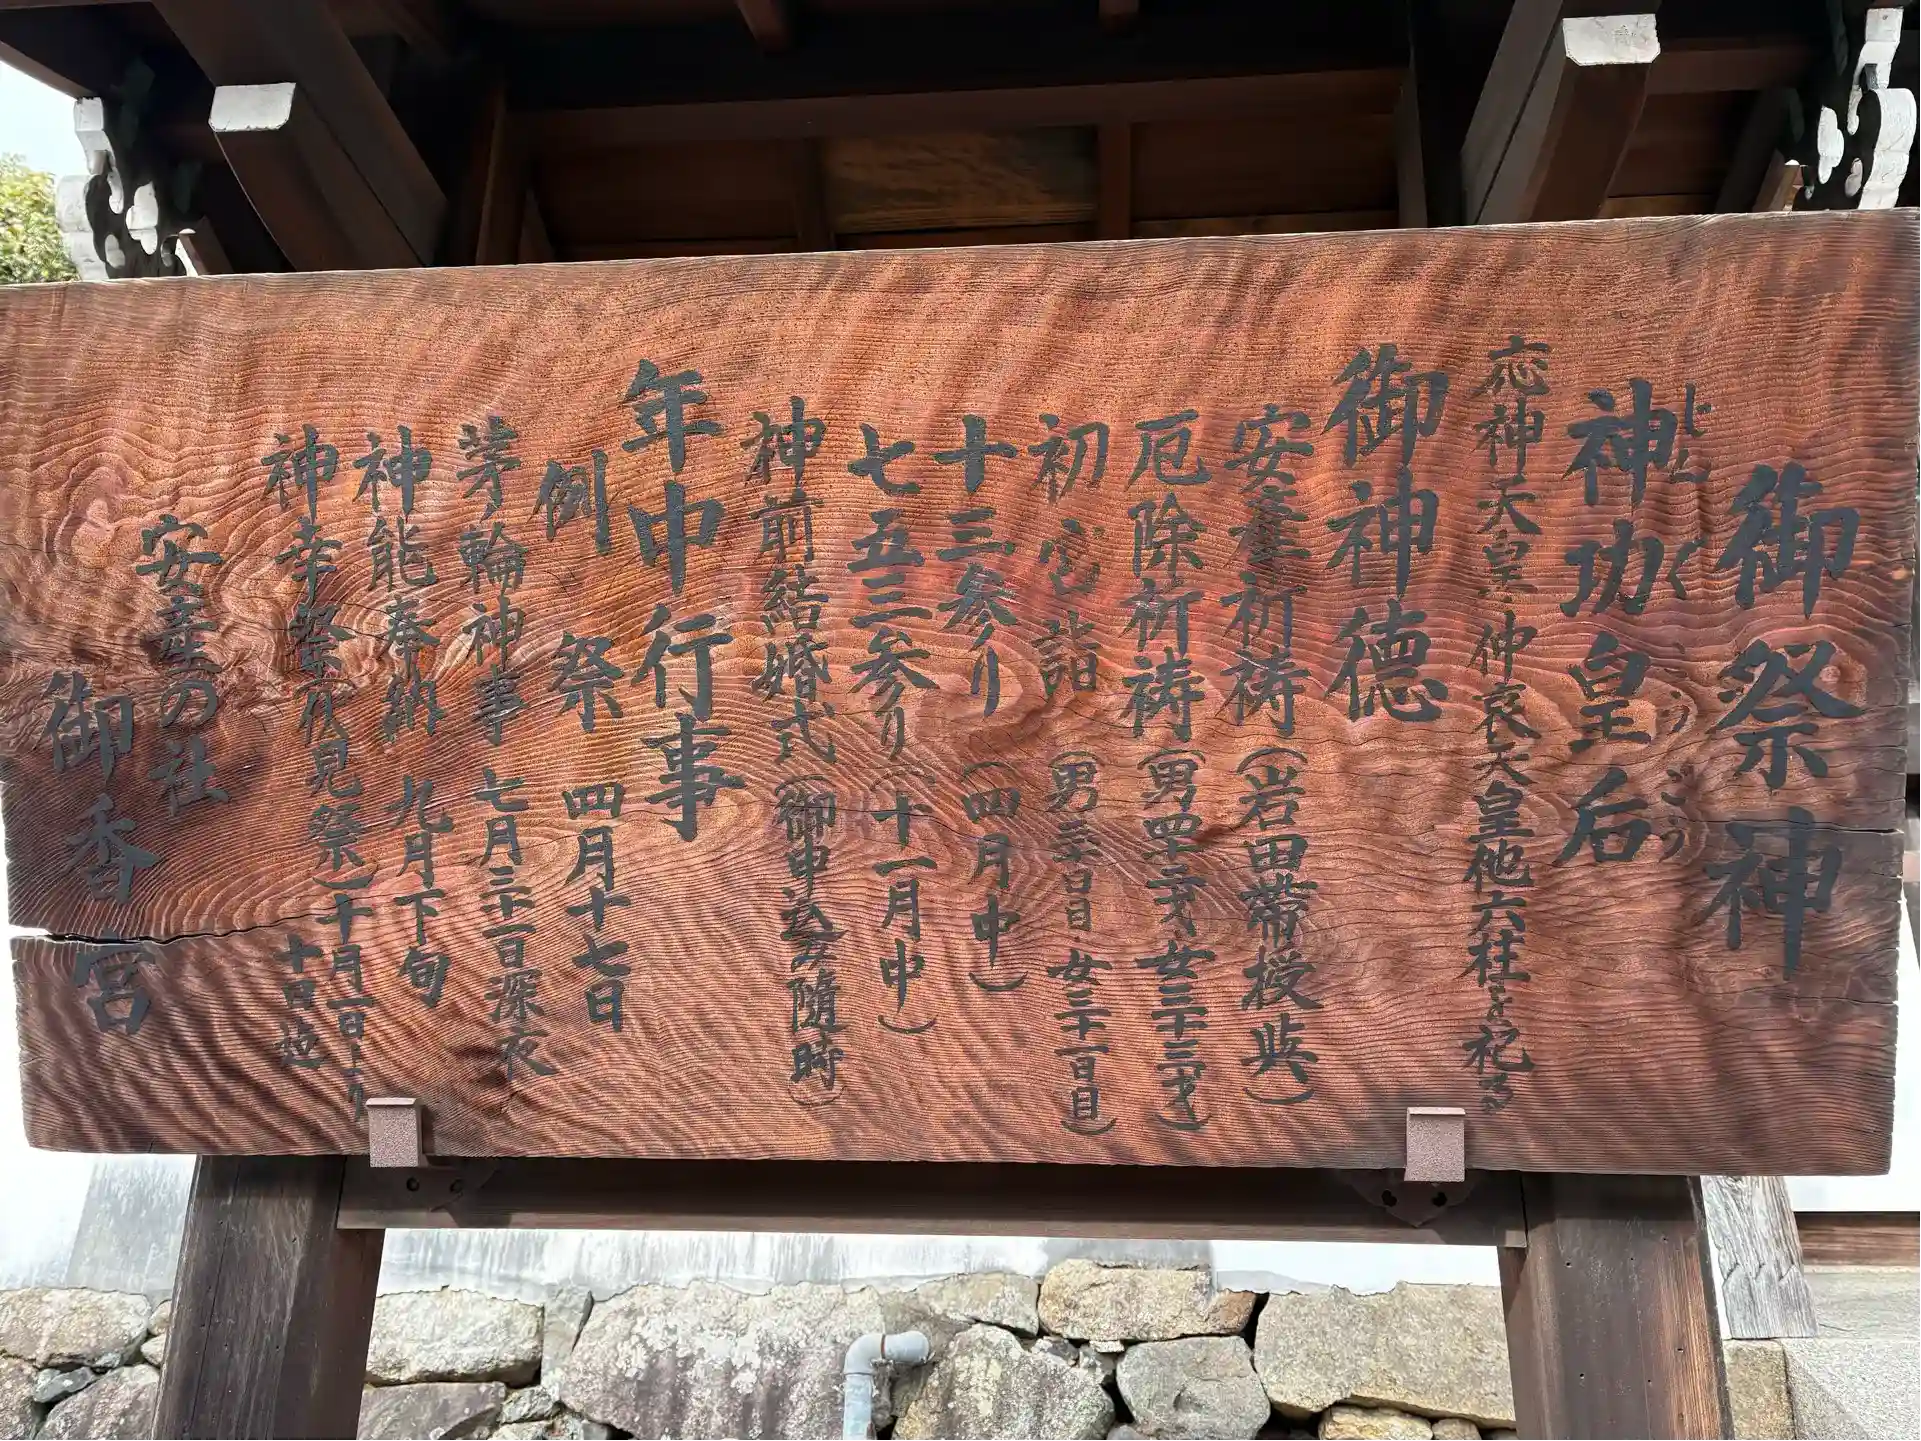 御祭神
神功皇后
じんぐうこうごう
応神天皇・仲哀天皇他六柱を祀る
御神徳
安産祈祷(岩田帯授与)
厄除祈祷(男四十二才女三十三才)
初宮詣(男三十日目・女三十一日目)
十三参り(四月中)
七五三参り(十一月中)
神前結婚式(御申込次第随時)
年中行事
例祭 四月十七日
茅ノ輪神事 七月三十一日深夜
神能奉納 九月下旬
神幸祭伏見祭(十月一日より
十日迄
安産の社
御香宮